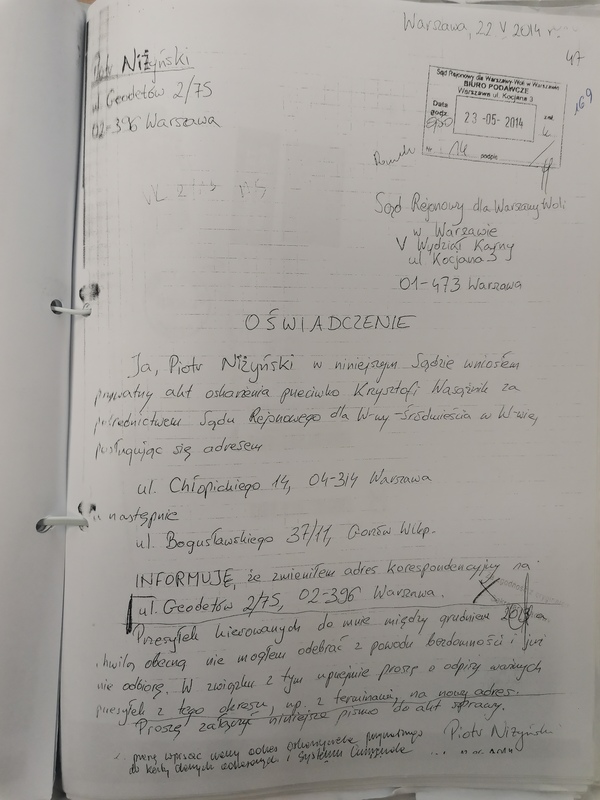 Warszawa, 22 V 2014 r.
47
Piotr Niżyński
ul. Geodetów 2/75
02-396 Warszawa
Sąd Rejonowy dla Warszawy-Woli w Warszawie
BIURO PODAWCZE
Warszawa ul. Kocjana 3
Data
godz.
23 -05- 2014
zał.
Nr
14
podpis
169
Sąd Rejonowy dla Warszawy Woli
w Warszawie
V Wydział Karny
ul Kocjana 3
01-473 Warszawa
OŚWIADCZENIE
Ja, Piotr Niżyński w niniejszym Sądzie wniosłem
prywatny akt oskarżenia przeciwko Krzysztofi Wasążnik za
pośrednictwem Sądu Rejonowego dla W-wy-Śródmieścia w W-wie,
posługując się adresem
ul. Chłopickiego 14, 04-314 Warszawa
a następnie
ul. Bogusławskiego 37/11, Gorzów Wlkp.
INFORMUJĘ, że zmieniłem adres korespondencyjny na
ul. Geodetów 2/75, 02-396 Warszawa.
Przesyłek kierowanych do mnie między grudniem 2013 a
chwilą obecną nie mogłem odebrać z powodu bezdomności i już
nie odbiorę. W związku z tym uprzejmie proszę o odpisy ważnych
przesyłek z tego okresu, np. z terminami, na nowy adres.
Proszę załączyć niniejsze pismo do akt sprawy.
Piotr Niżyński
proszę wpisać nowy adres oskarżyciela prywatnego
do karty danych adresowych i Systemu